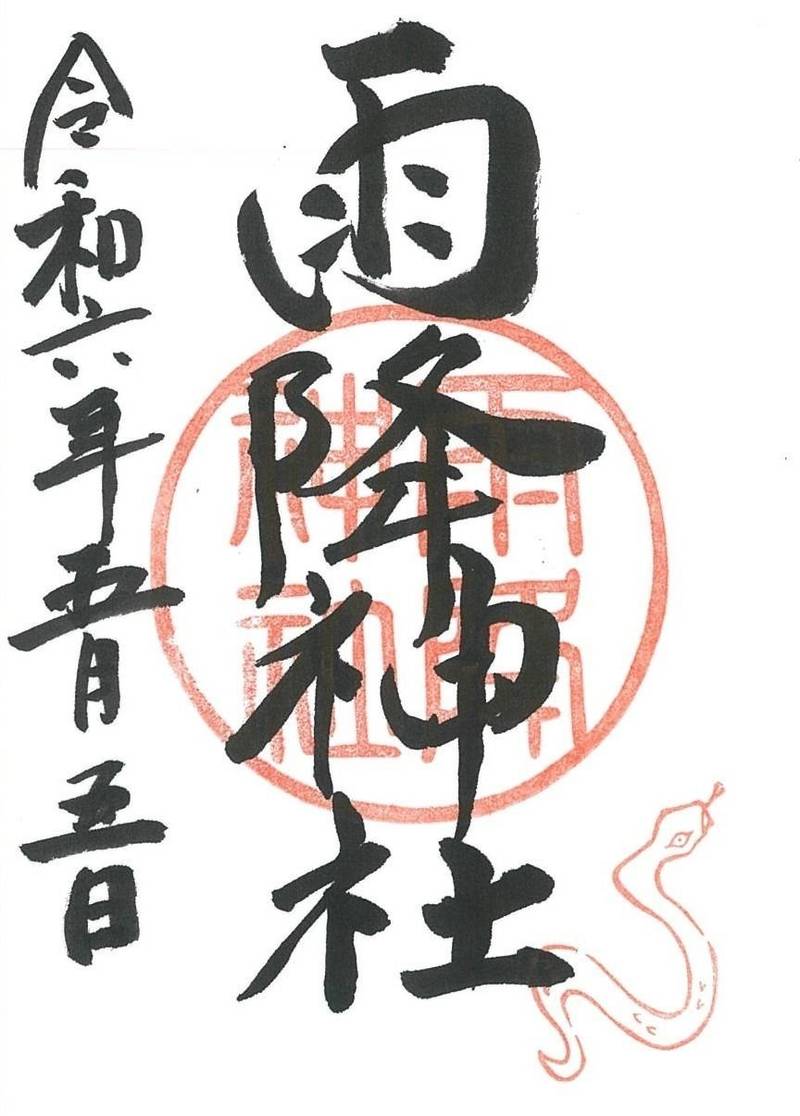 雨降神社
雨降
神社
令和六年五月五日